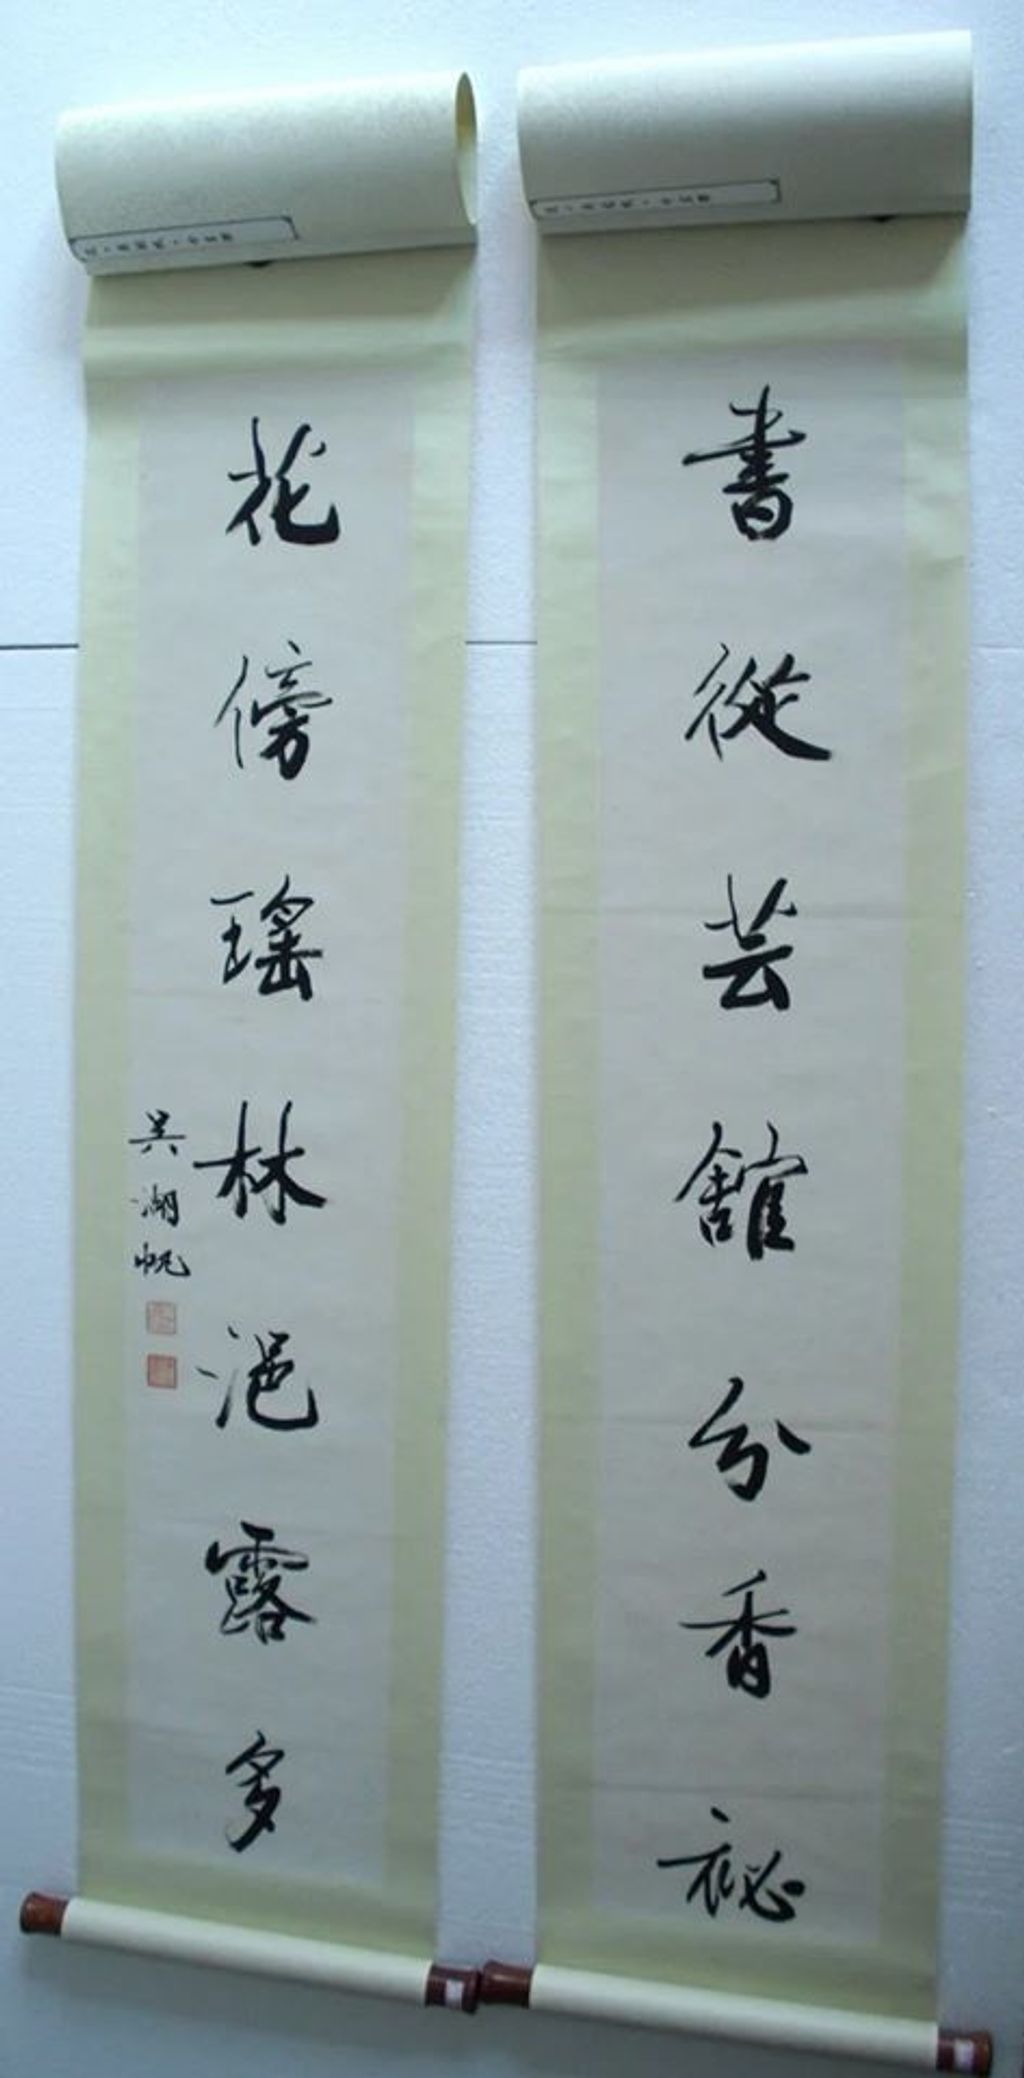 書從芸館分香秘
花傍瑤林浥露多
吳湖帆